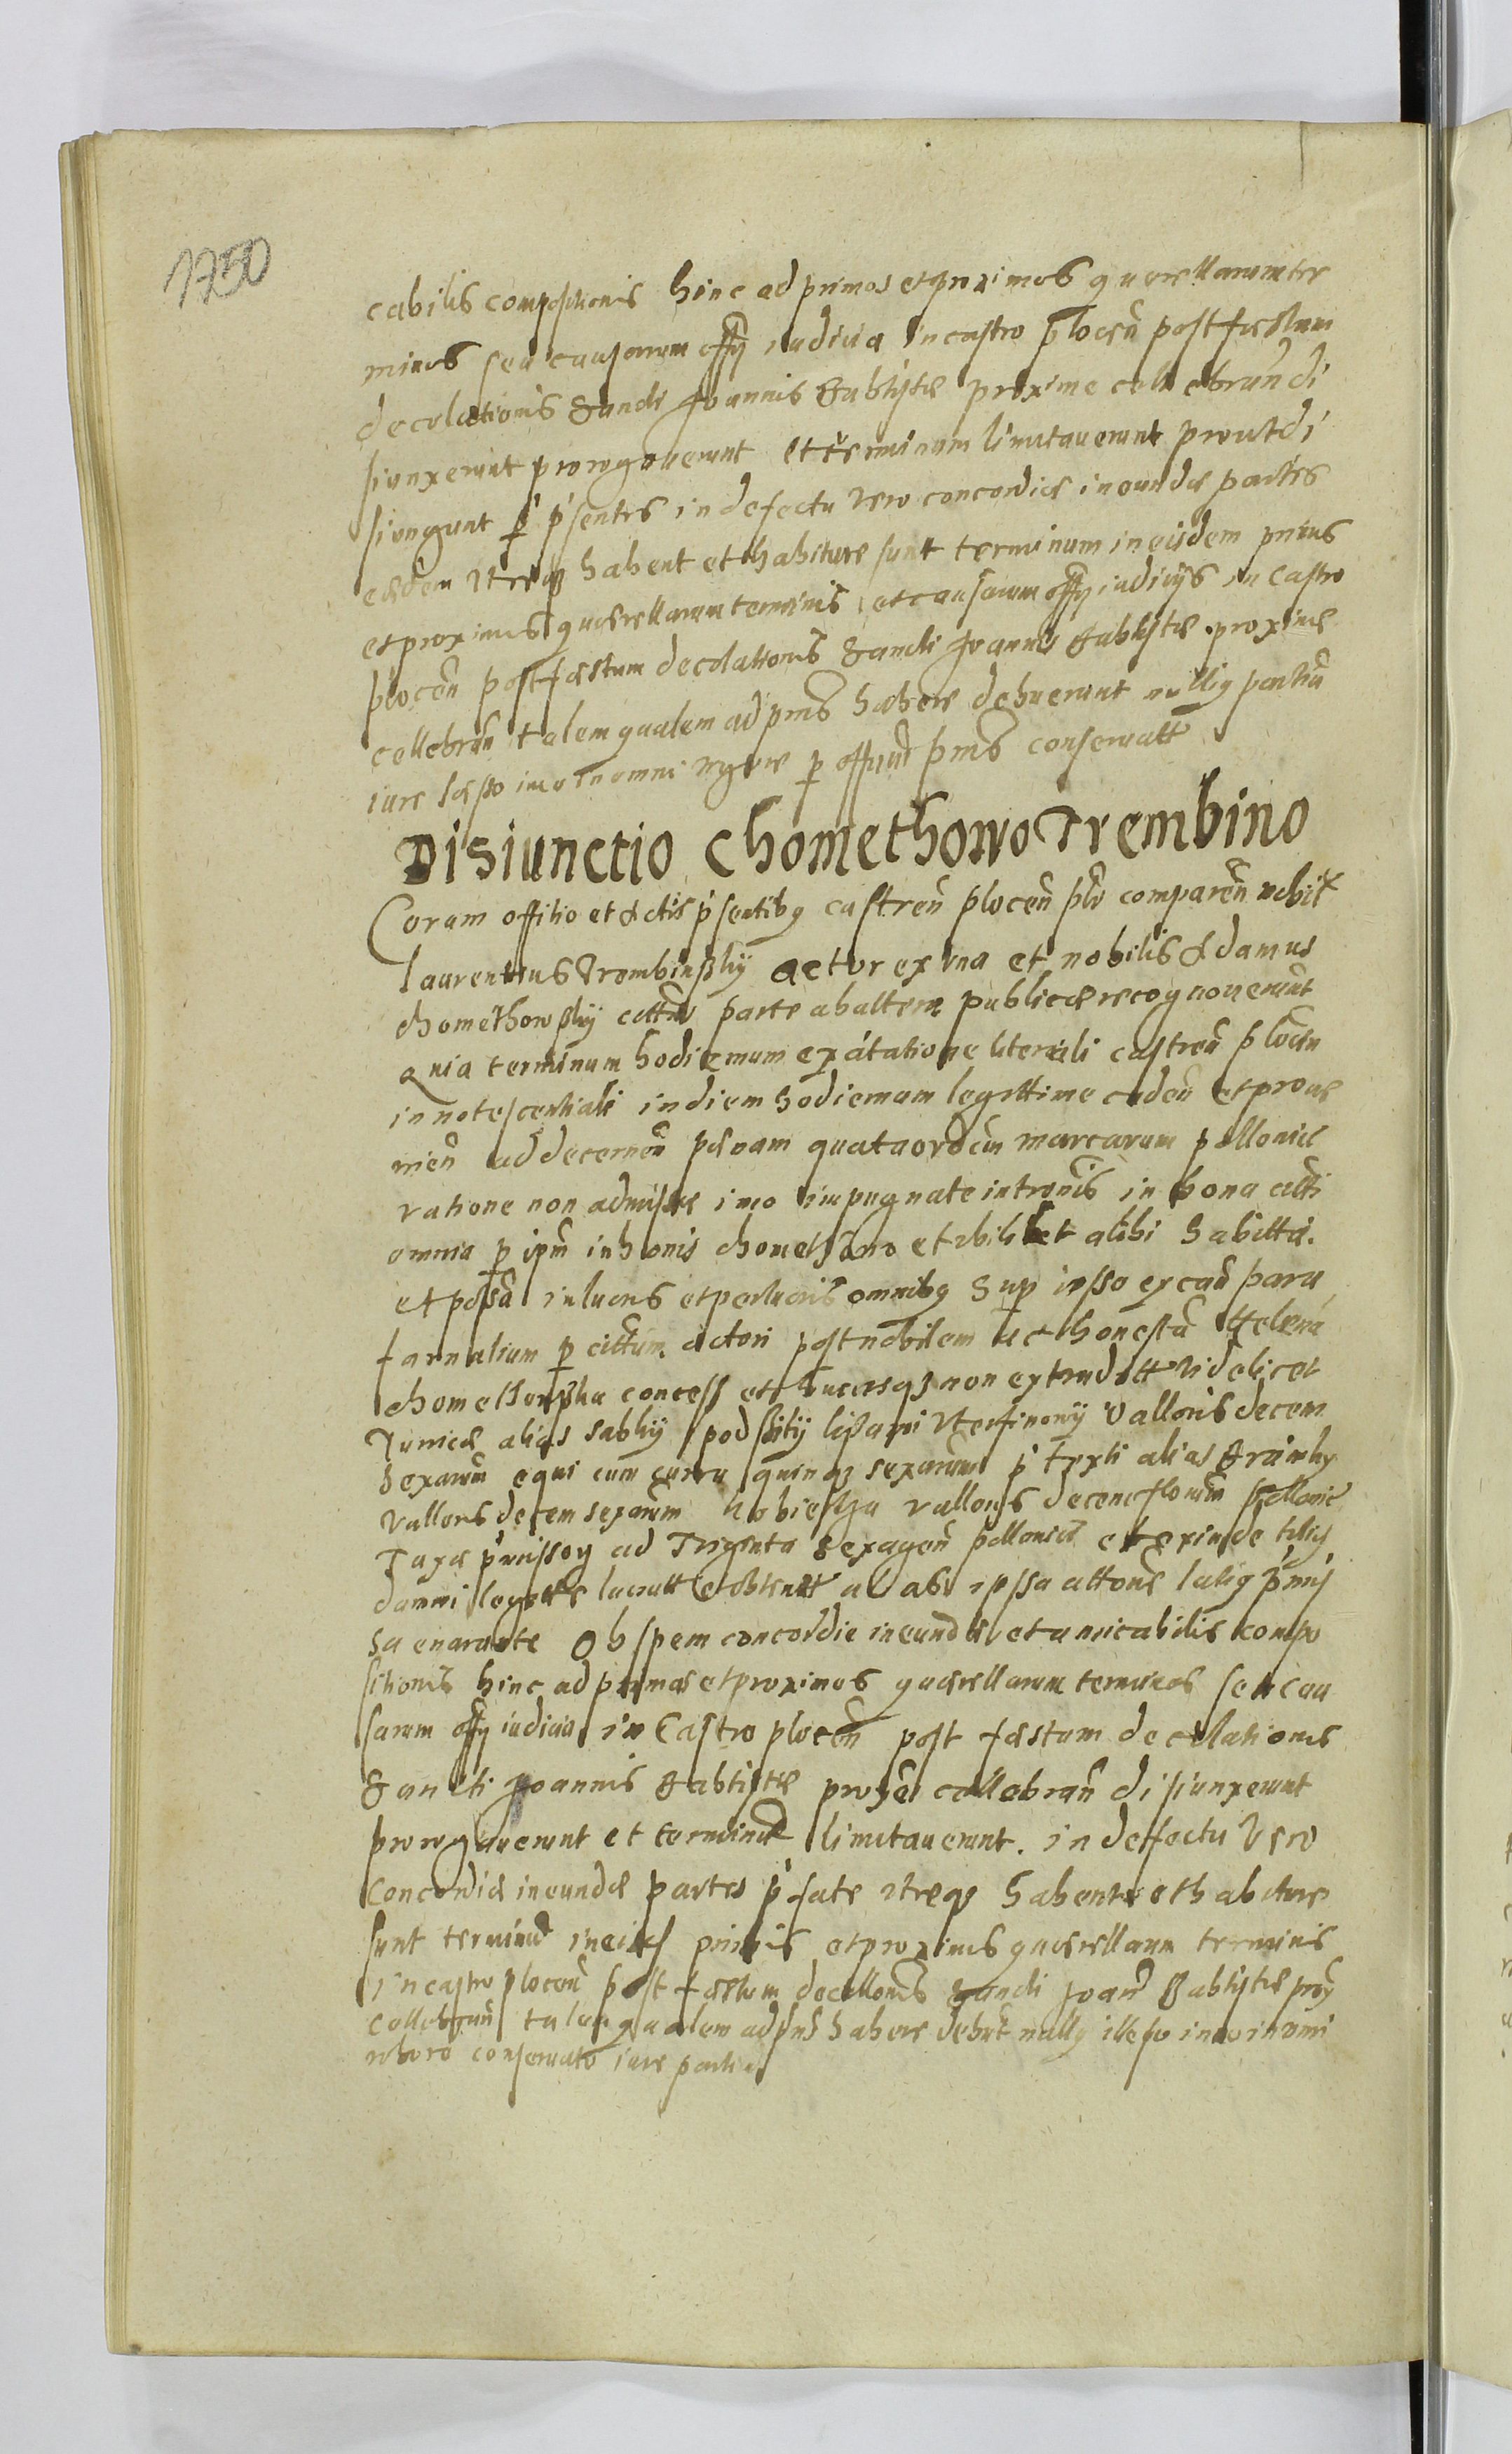 1750
cabilis compositionis hinc ad primos et proximos querellarum ter
minos seu causarum offy iudicia in castro plocen post festum
decolationis Sancti Joannis Babtistæ proxime cellebrandi
siunxerunt prorogaverunt et terminum limitaverunt prout di
siungunt p psentes in defectu vero concordiæ ineundæ partes
eædem utreqz habent et habituræ sunt terminum in eisdem primis
et proximis querellarum terminis et causarum offy iudicijs in Castro
plocen post festum decolationis Sancti Joannis Babtistæ proxime
cellebran talem qualem ad pns habere debuerunt nullig partiu
iure læso imo in omni rigore p offium pns conservatt
Disiunctio Chomethowo Trembino
Coram offitio et Actis psentibg castren plocen plr comparen nobil
laurentius Trembinsky actor ex una et nobilis Adamus
Chomethowsky citt parte ab altera publicæ recognoverunt
Quia terminum hodiernum ex citatione literali castren plocen
innotescentiali in diem hodiernum legittime caden et prove
nien ad decernen pænam quatuordecim marcarum pollonic
ratione non admissæ imo impugnate intromis in bona citti
omnia p ipm in bonis chomethowo et ubilibet alibi habitta.
et possa in lucris et perlucris omnibg Sup ipso ex cau para
farnalium p cittum actori post nobilem ac honesta Helena
chomethowska concess et hucusqz non extraditt videlicet
Tunicæ alias sabky podszity lisami valloris decem
Sexarum equi cum curru quinqz sexarum
valloris decem sexarum valloris decem florum pollonic
Taxæ pmissoy ad Triginta Sexagen pollonic et exinde
damni legitte lucratt obtentt ac ab ipssa attone latig pmis
sa enarante Ob spem concordie ineundæ et amicabilis compo
sitionis hinc ad primos et proximos querellarum terminos seu cau
sarum offy iudicia in Castro plocen post festum decolationis
Sancti Joannis Babtistæ proxe cellebran disiunxerunt
prorogaverunt et terminu limitaverunt. in deffectu vero
Concordiæ ineundæ partes pfate utreqz habent et habituræ
sunt terminu in eisd primis et proximis querellarum terminis
in castro plocen post festum decollonis Sancti Joan Babtistæ prox
Cellebran talem qualem ad pns habere debut nullig illeso imo in omni
robore conservato iure partiu